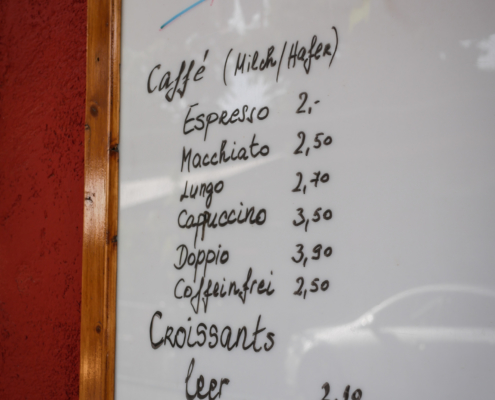 Caffé (Milch/Hafer)
Espresso 2,-
Macchiato 2,50
Lungo 2,70
Cappuccino 3,50
Doppio 3,90
Coffeinfrei 2,50
Croissants
leer 2,10